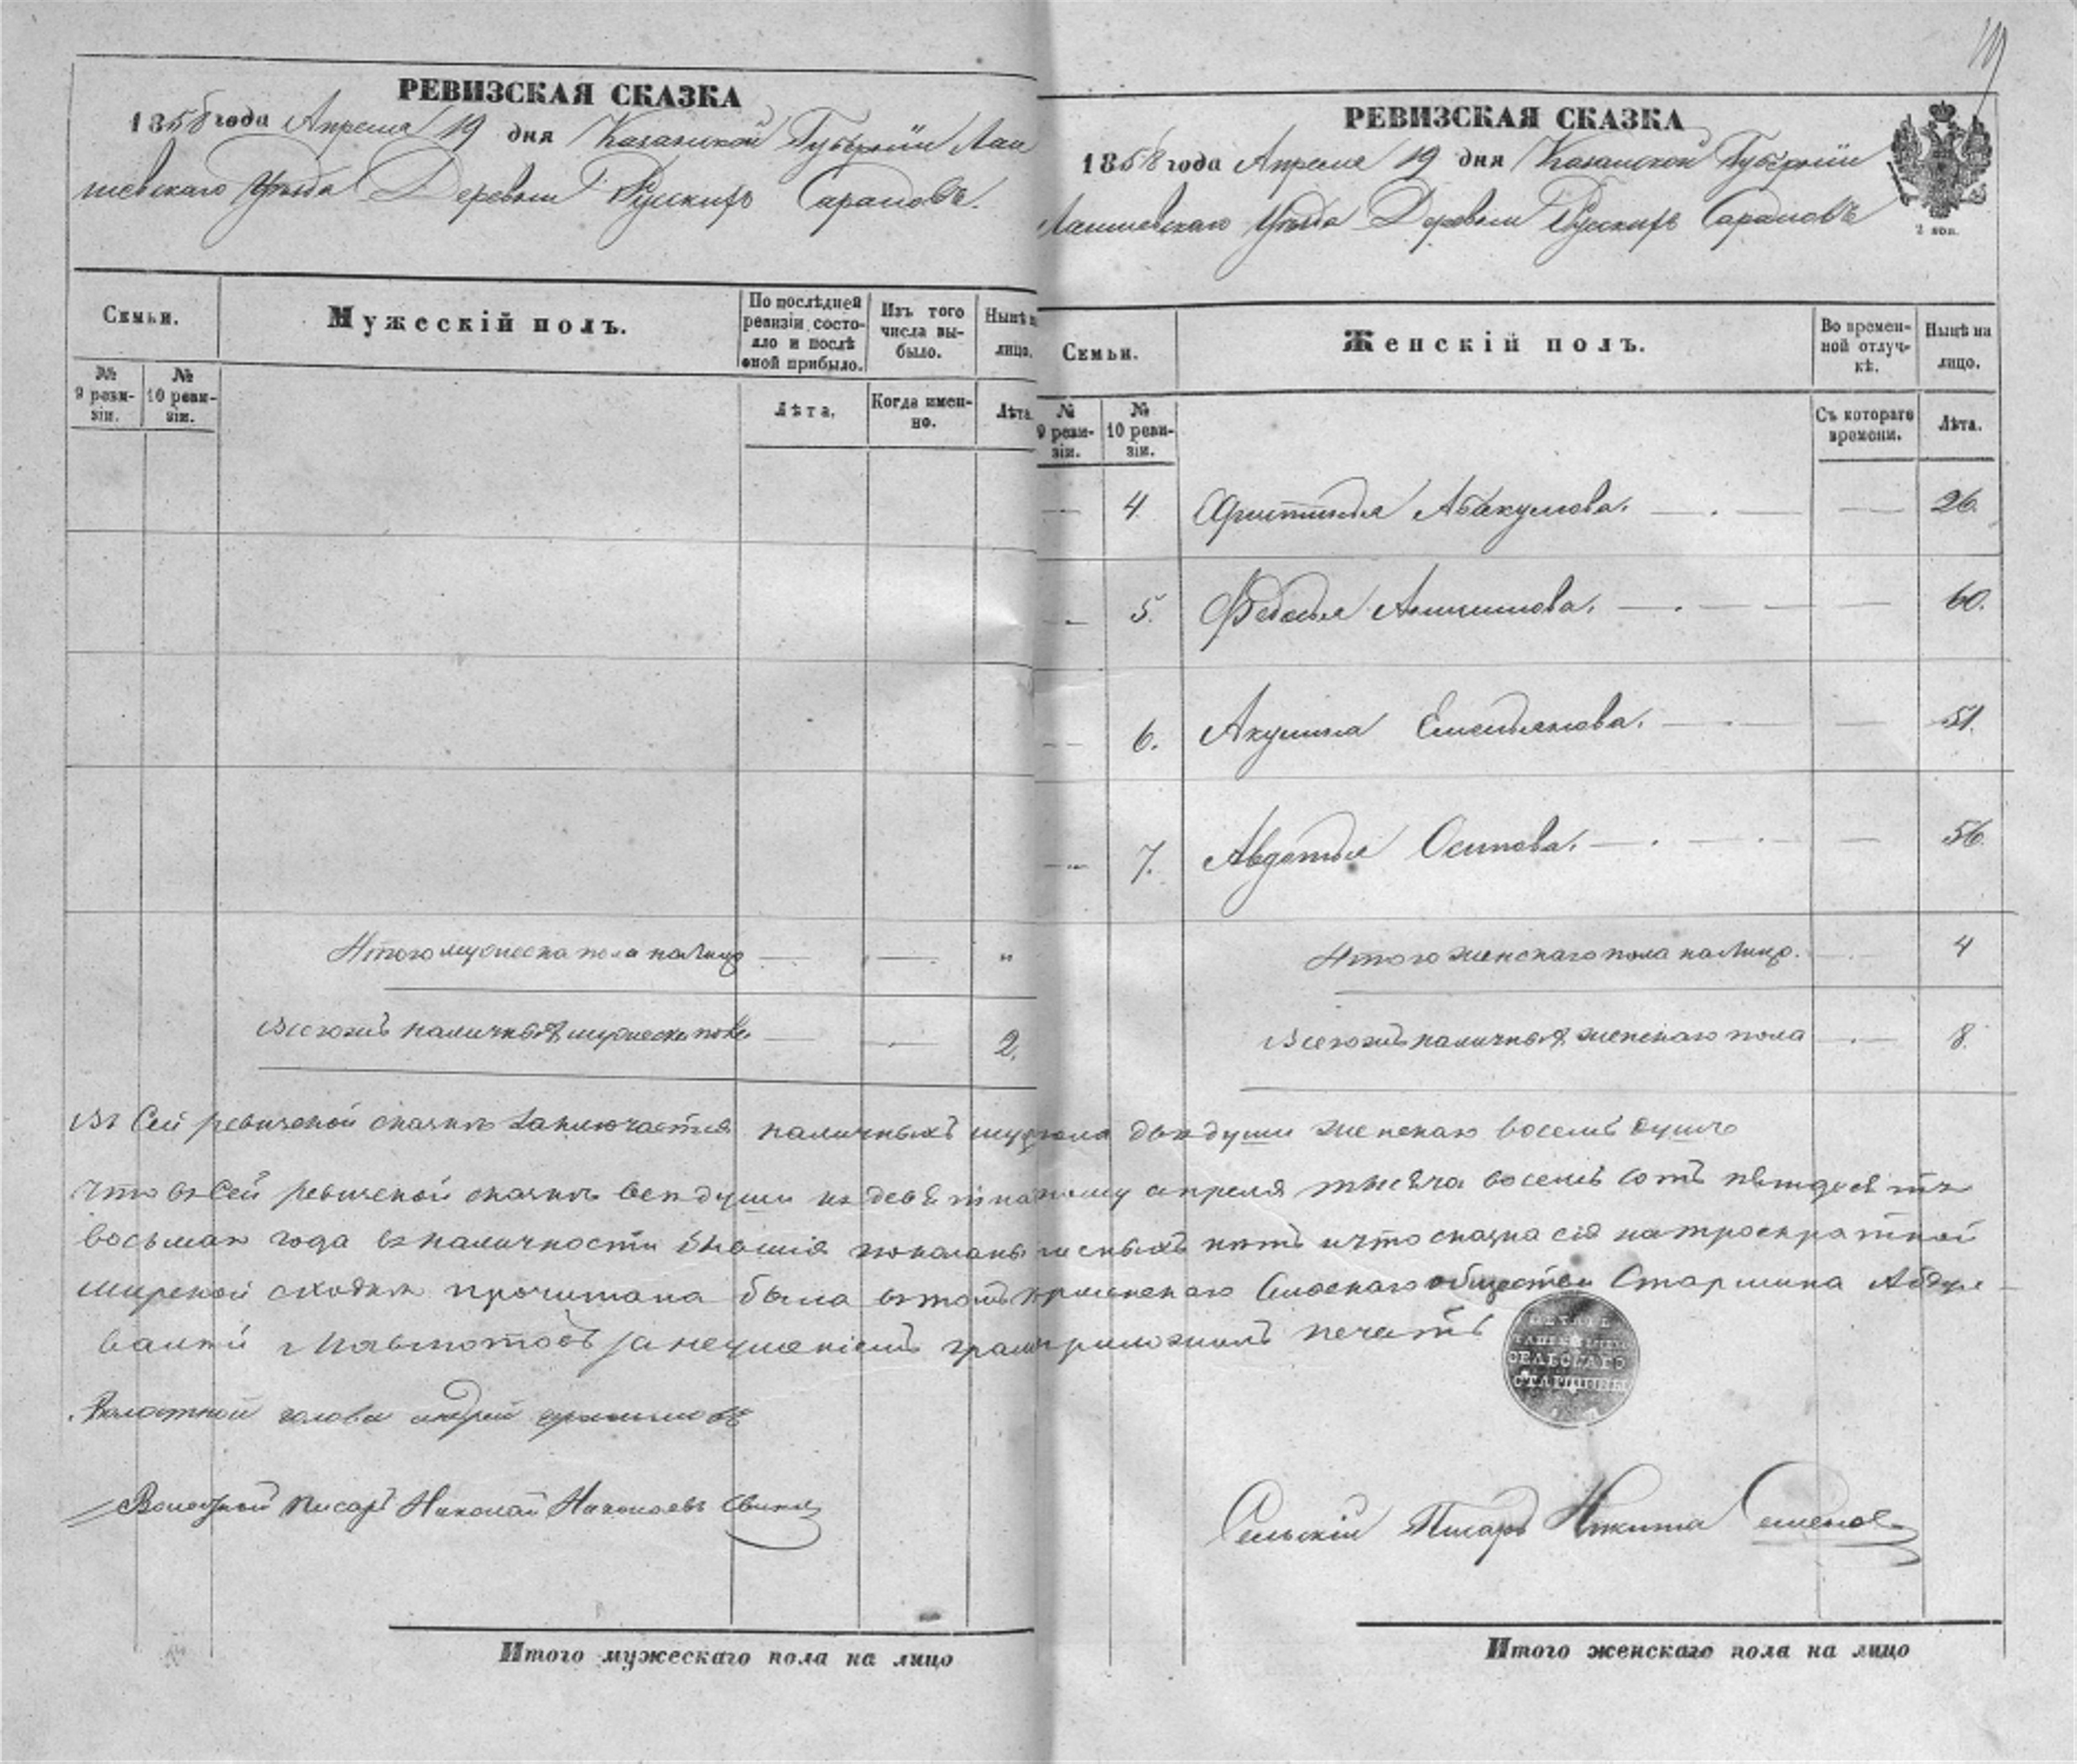 РЕВИЗСКАЯ СКАЗКА
1858 года Апреля 19 дня Казанской Губерніи Лаи
шевскаго Уѣзда Деревни Русскихъ Сараловъ.
Семьи.
Мужескій полъ.
По послѣдней ревизіи состояло и послѣ оной прибыло.
Изъ того числа выбыло.
Нынѣ на лицо.
№ 9 ревизіи.
№ 10 ревизіи.
Лѣта.
Когда именно.
Лѣта.
Итого мужеска пола налицо — — "
Всегожъ наличныхъ мужеска пола — — 2.
РЕВИЗСКАЯ СКАЗКА
1858 года Апреля 19 дня Казанской Губерніи
Лаишевскаго Уѣзда Деревни Русскихъ Сараловъ
2 коп.
Семьи.
Женскій полъ.
Во временной отлучкѣ.
Нынѣ на лицо.
№ 9 ревизіи.
№ 10 ревизіи.
Съ котораго времени.
Лѣта.
— 4. Абакумова. — — 26.
— 5. Федосья — — 60.
— 6. Акулина Емельянова. — — 51.
— 7. Авдотья Осипова. — — 56.
Итого женскаго пола налицо. — 4
Всегожъ наличныхъ женскаго пола — 8.
Въ Сей ревизской сказкѣ заключается наличныхъ муж пола двѣ души женскаго восемь душъ
Что въ Сей ревизской сказкѣ все души къ девятна апреля тысяча восемь сотъ пятдесятъ
восьмаго года въ наличности бывшія показаны нѣтъ и что сказка сія на троекратной
мирской сходкѣ прочитана была въ томъ общества Старшина Абдул
валей за неумѣніемъ грам приложилъ печать
ПЕЧАТЬ
СЕЛЬСКАГО
СТАРШИНЫ
Волостной голова андрей
Волостной Писарь Николай Николаевъ
Сельскій Писарь Никита Семенов
Итого мужескаго пола на лицо
Итого женскаго пола на лицо